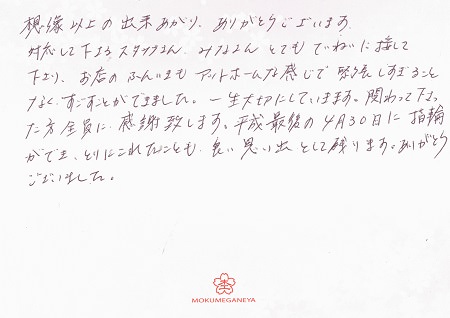 想像以上の出来あがり、ありがとうございます。
対応して下さるスタッフさん、みなさん とても ていねいに 接して
下さり、お店の ふんいきも アットホームな感じで 緊張しすぎること
なく、すごすことができました。一生大切にしていきます。関わって下さっ
た方全員に 感謝致します。平成最後の 4月30日に 指輪
ができ、とりにこれたことも、良い思い出 として残ります。ありがとう
ございました。
MOKUMEGANEYA